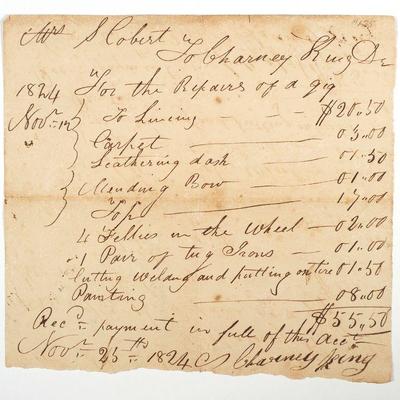 Mrs S Cobert
To Charney King Dr
1824 For the Repairs of a gig
Novr 19 To Lining — — $20.50
Carpet — 03.00
Leathering dash 01.50
Mending Bow — 01.00
Top — 17.00
4 Fellies in the Wheel — 02.00
1 Pair of tug Irons — 01.00
Cutting Welding and putting on tire 01.50
Painting — 08.00
$55.50
Recd payment in full of this acct
Novr 25th 1824 Charney King